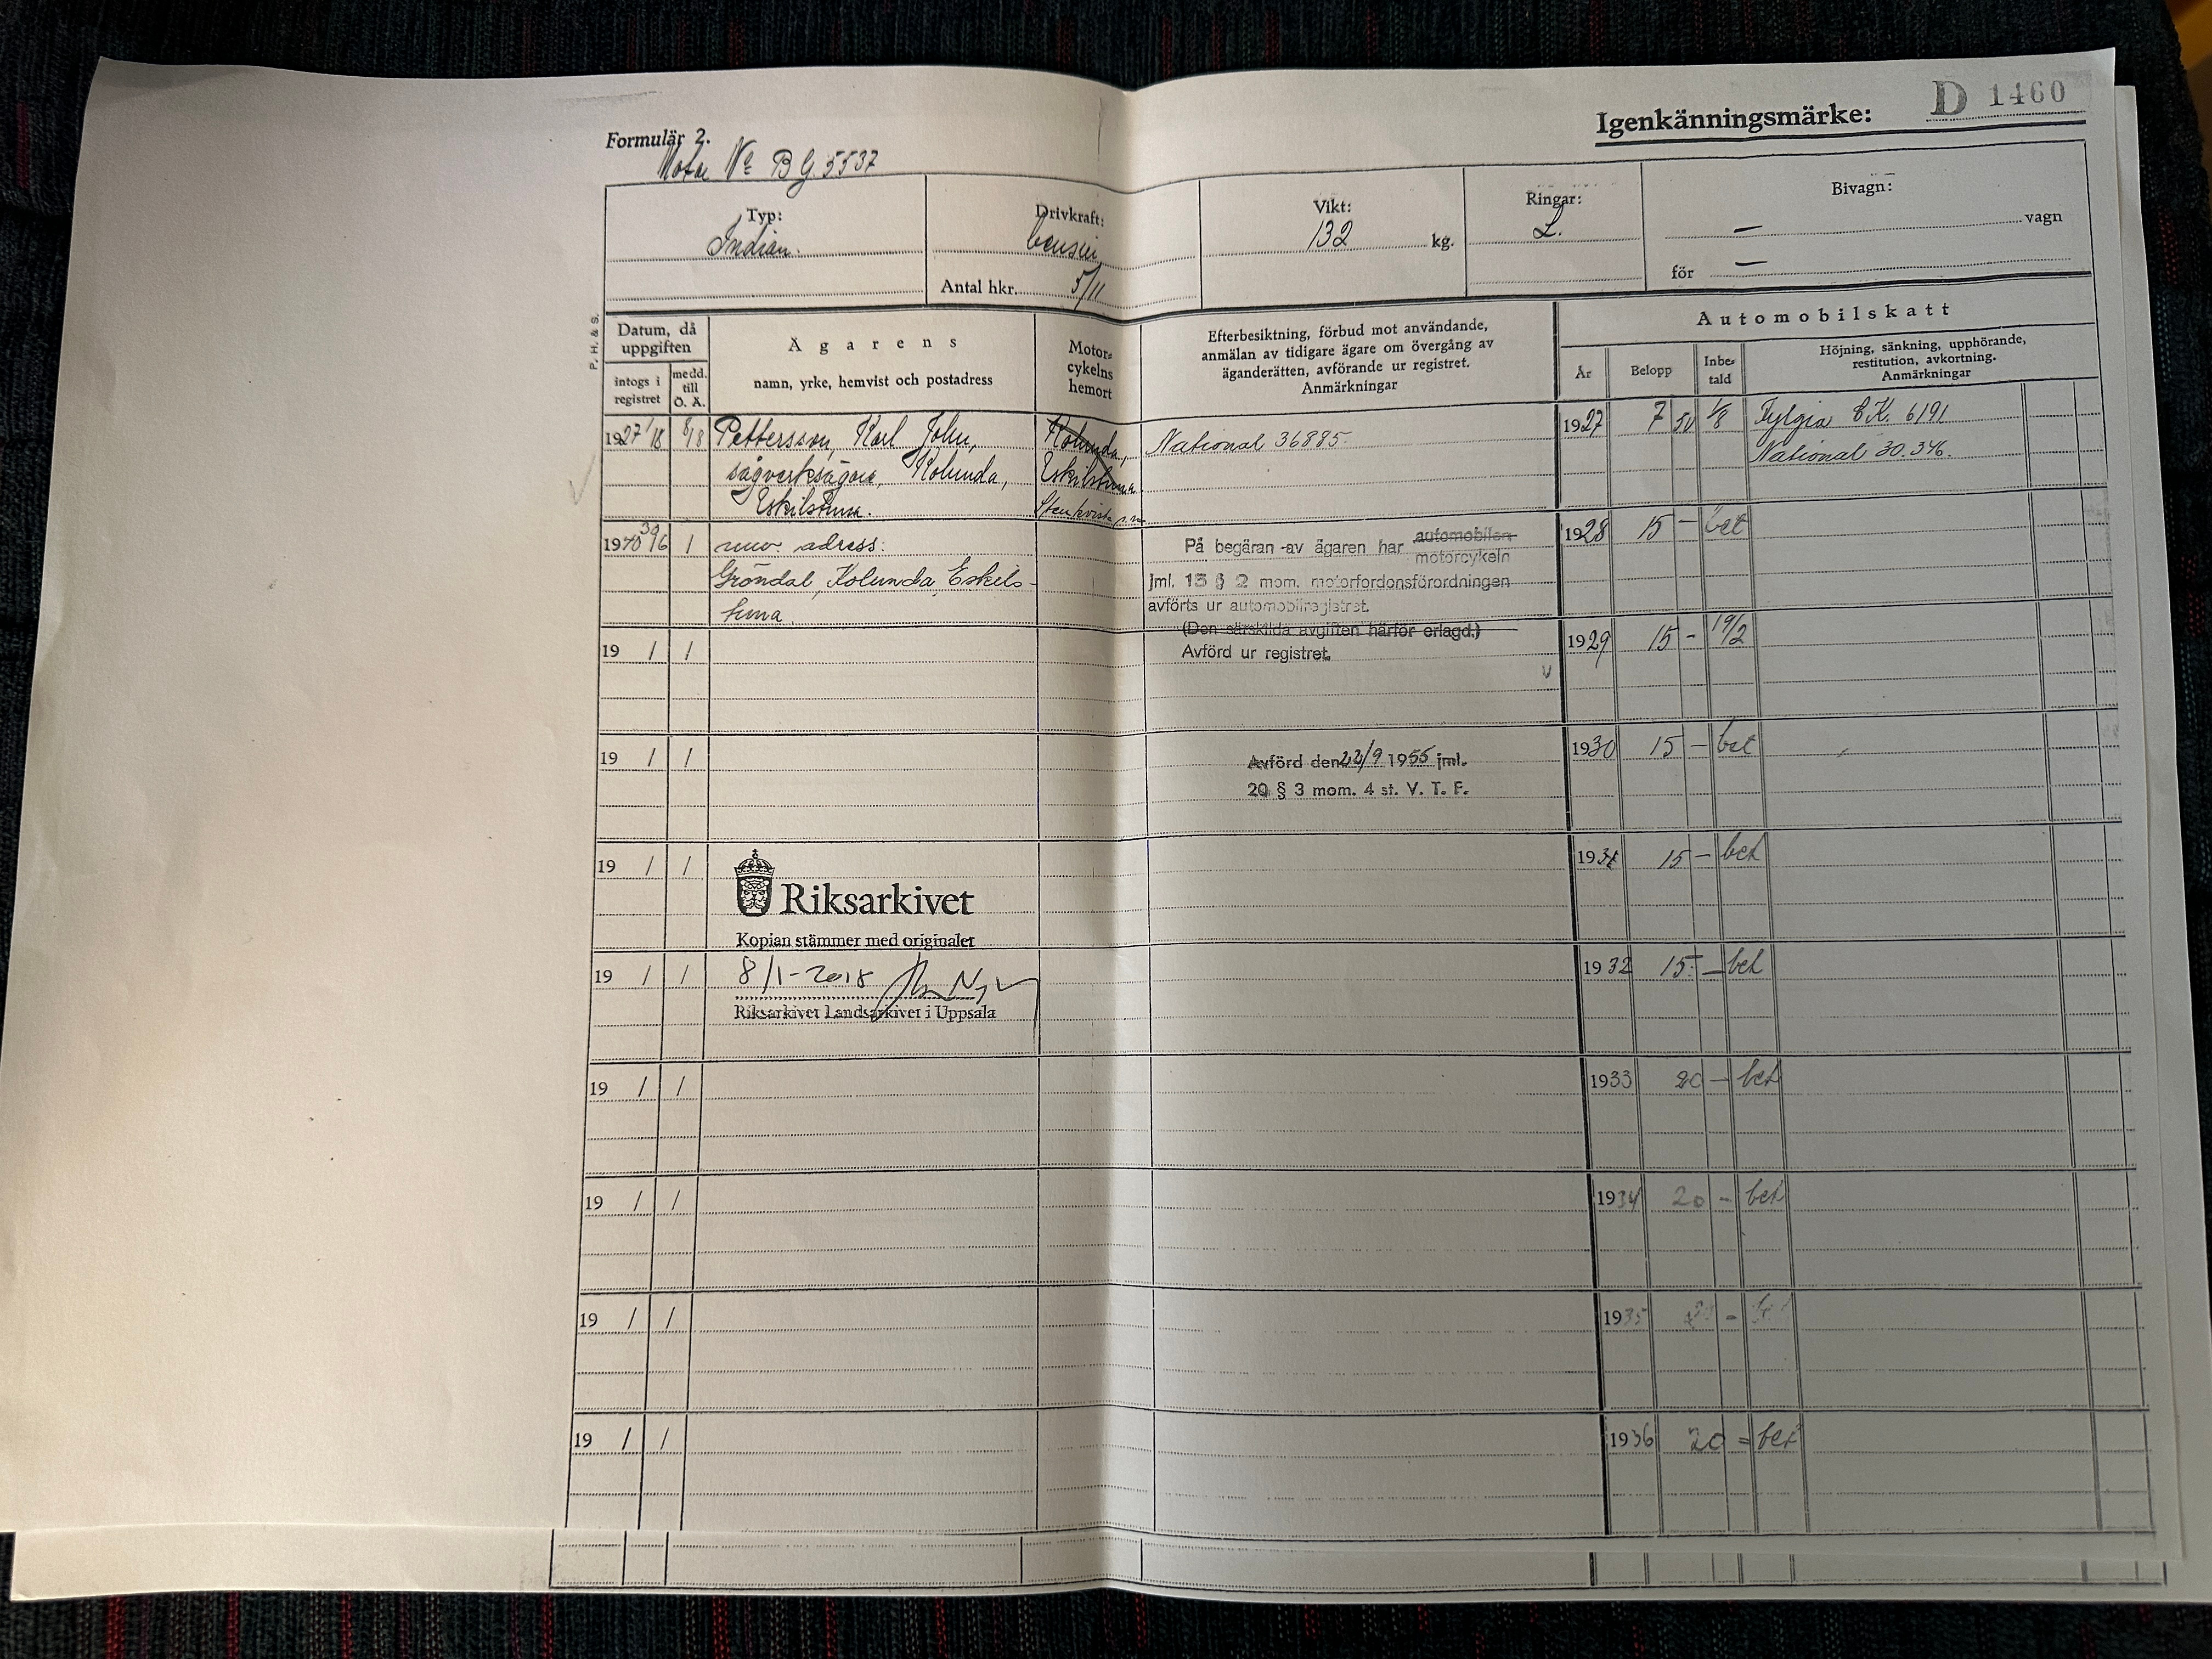 Igenkänningsmärke: D 1460
Formulär 2.
Motor No BG. 5537
Typ: Indian.
Drivkraft: bensin
Antal hkr. 5/11
Vikt: 132 kg.
Ringar: L.
Bivagn: — vagn
för —
P. H. & S.
Datum, då uppgiften
intogs i registret
medd. till Ö. Ä.
Ägarens
namn, yrke, hemvist och postadress
Motor-
cykelns
hemort
Efterbesiktning, förbud mot användande,
anmälan av tidigare ägare om övergång av
äganderätten, avförande ur registret.
Anmärkningar
Automobilskatt
År
Belopp
Inbe-
tald
Höjning, sänkning, upphörande,
restitution, avkortning.
Anmärkningar
1927 1/8 8/8 Pettersson, Karl John,
sågverksägare, Kolunda,
Eskilstuna.
Kolunda,
Eskilstuna
Stenkvista
National 36885.
1927 7 50 1/8 Fylgia EK. 6191
National 30.346.
1940 nuv. adress:
Gröndal, Kolunda, Eskils-
tuna
På begäran av ägaren har automobilen
motorcykeln
jml. 13 § 2 mom. motorfordonsförordningen
avförts ur automobilregistret.
(Den särskilda avgiften härför erlagd.)
Avförd ur registret.
1928 15 — bet
19 / /
1929 15 - 19/2
19 / /
Avförd den 22/9 1955 jml.
20 § 3 mom. 4 st. V. T. F.
1930 15 — bet
19 / /
1931 15 — bet
Riksarkivet
Kopian stämmer med originalet
19 / /
8/1-2018
Riksarkivet Landsarkivet i Uppsala
1932 15 — bet
19 / /
1933 20 — bet
19 / /
1934 20 - bet
19 / /
1935 -
19 / /
1936 20 = bet